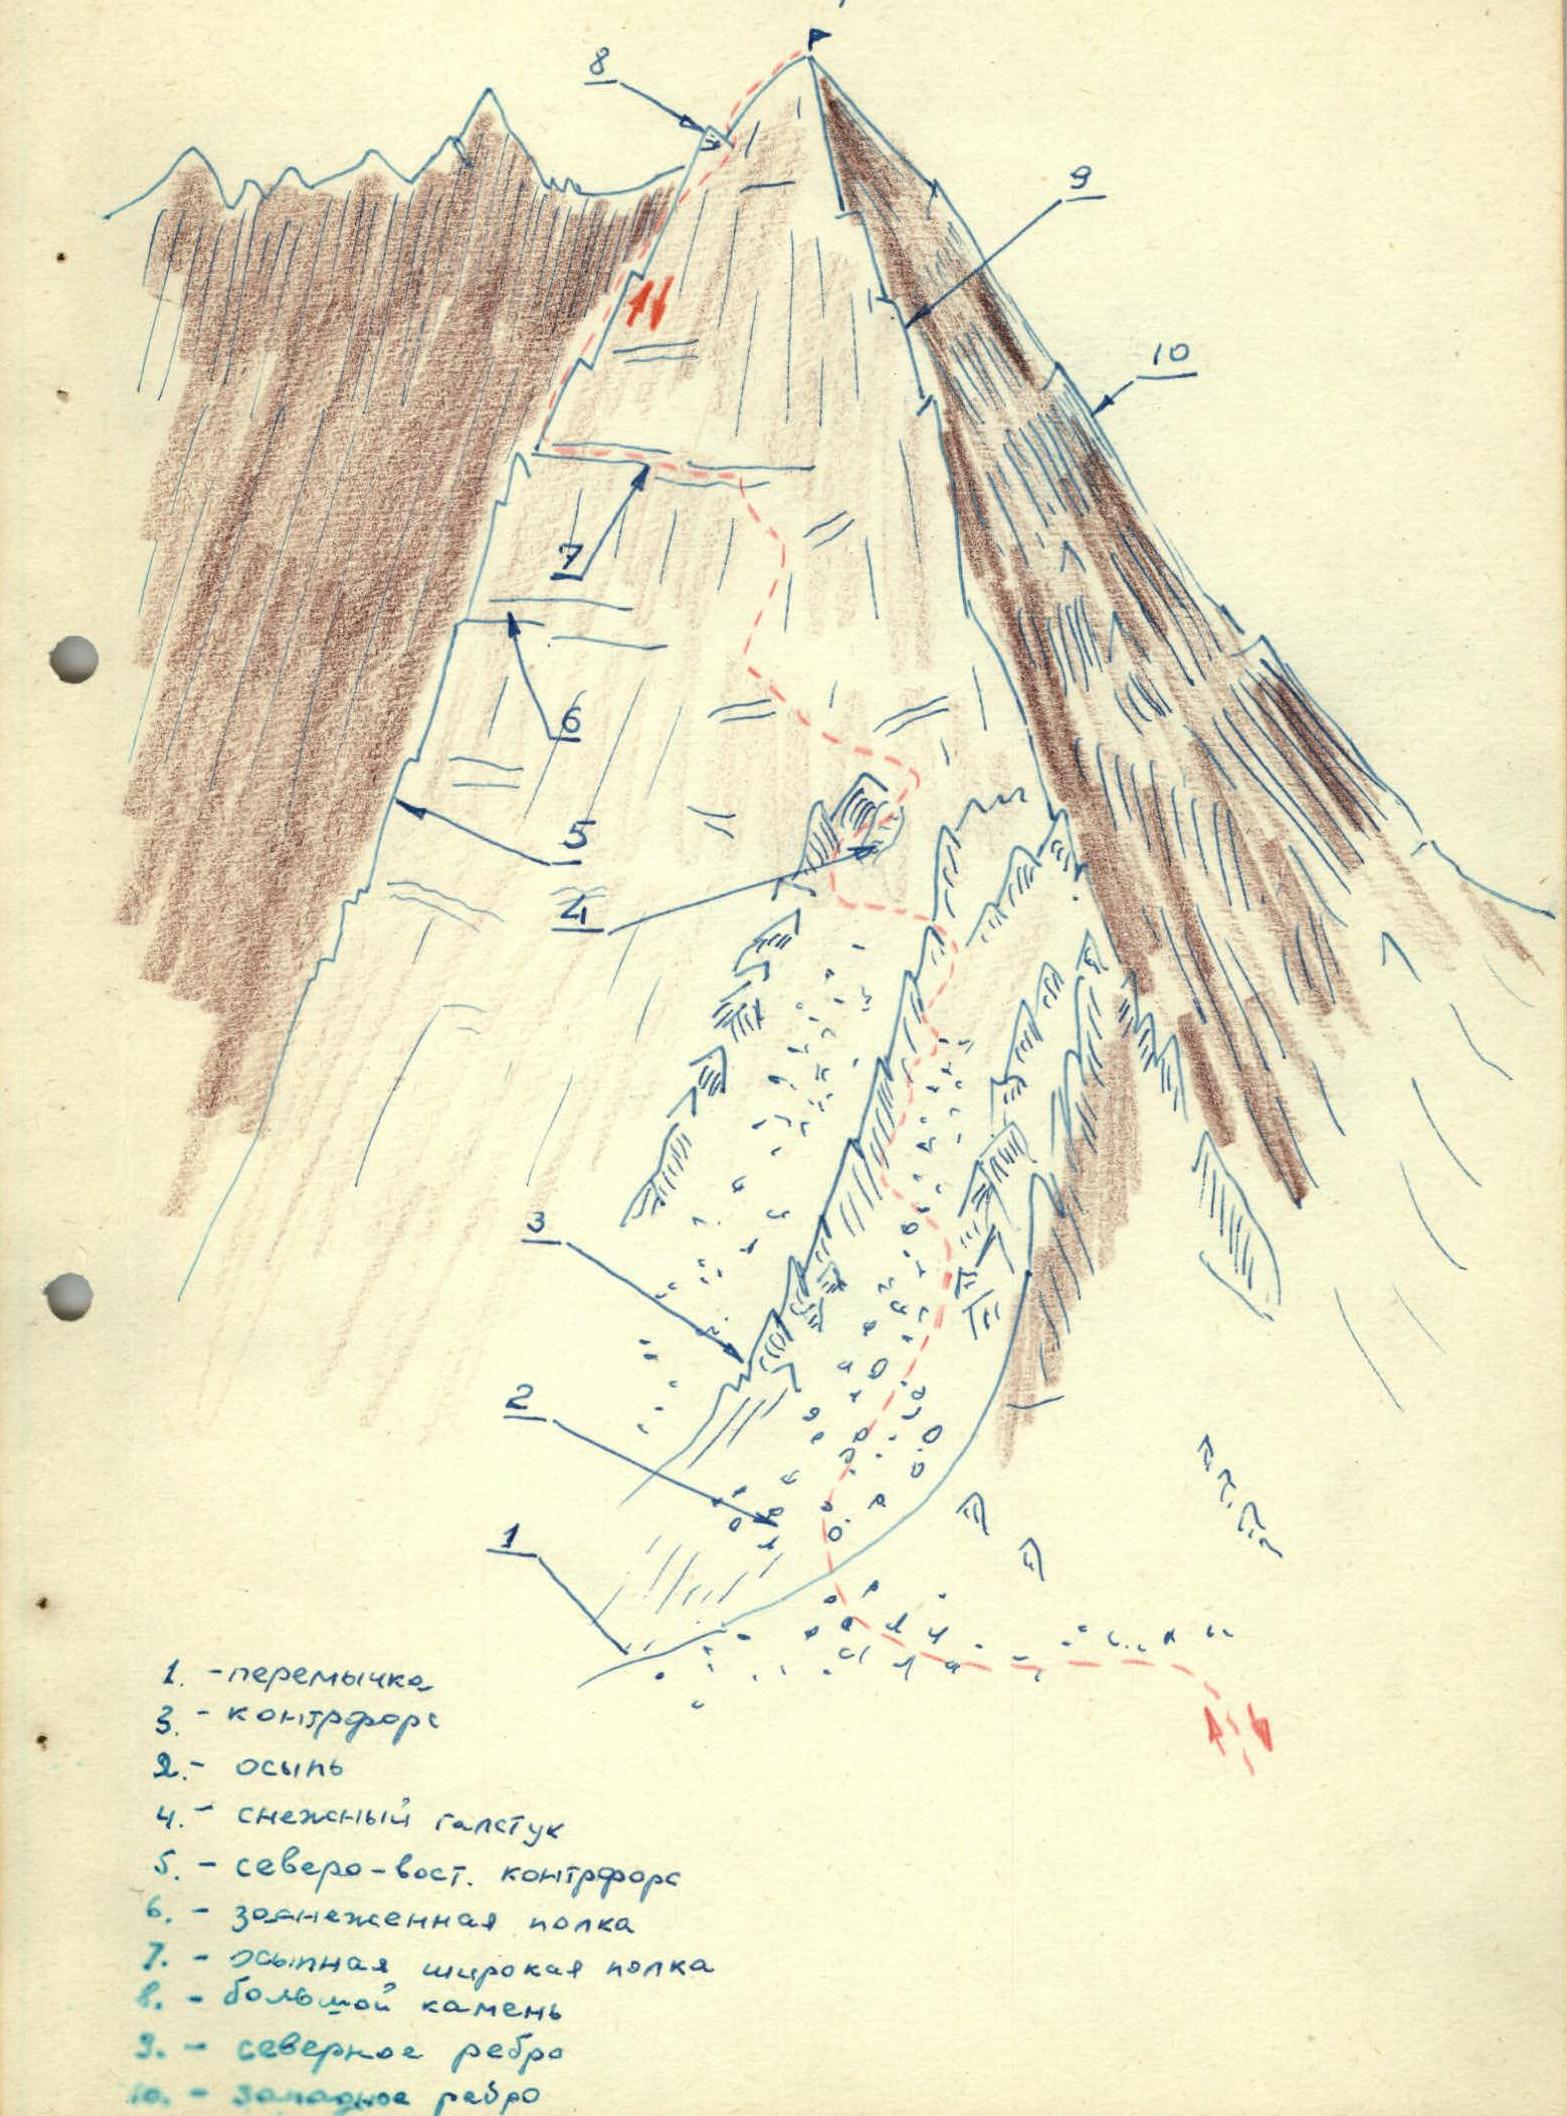 8
9
10
7
6
5
4
3
2
1
1. - перемычка
3. - контрфорс
2. - осыпь
4. - снежный галстук
5. - северо-вост. контрфорс
6. - заснеженная полка
7. - осыпная широкая полка
8. - большой камень
9. - северное ребро
10. - западное ребро